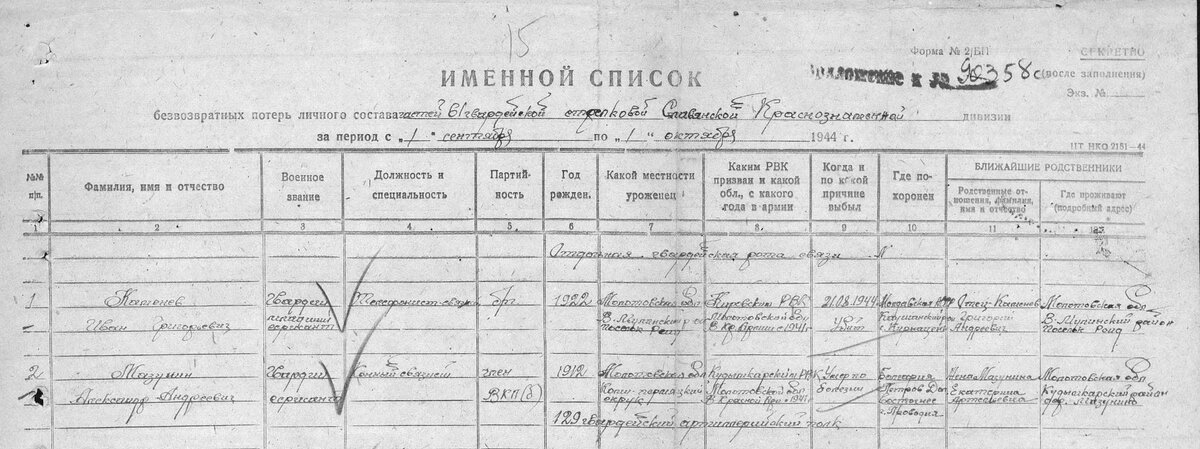 15
Форма № 2/БП
СЕКРЕТНО
ИМЕННОЙ СПИСОК
Приложение к № 90358с
(после заполнения)
Экз. №
безвозвратных потерь личного состава частей 61 гвардейской стрелковой Славянской Краснознаменной дивизии
за период с „ 1 “ сентября по „ 1 “ октября 1944 г.
ЦТ НКО 2151—44
№№ п/п.
Фамилия, имя и отчество
Военное звание
Должность и специальность
Партийность
Год рожден.
Какой местности уроженец
Каким РВК призван и какой обл., с какого года в армии
Когда и по какой причине выбыл
Где похоронен
БЛИЖАЙШИЕ РОДСТВЕННИКИ
Родственные отношения, фамилия, имя и отчество
Где проживают (подробный адрес)
1 2 3 4 5 6 7 8 9 10 11 12
Отдельная гвардейская рота связи
1 Гвардии 1922 Молотовская обл 21.08.1944 Отец Молотовская обл
Иван Григорьевич младший сержант поселок Убит Григорий Андреевич район поселок
2 Мазунин Гвардии Конный связной член 1912 Молотовская обл Кудымкарский РВК Умер по Болгария Жена Мазунина Молотовская обл
Александр Андреевич сержант ВКП(б) округ Молотовской обл болезни Екатерина Кудымкарский район
В Красной Арм с 1941 г. г. Проводия Артемьевна дер. Мазунино
129 гвардейский артиллерийский полк